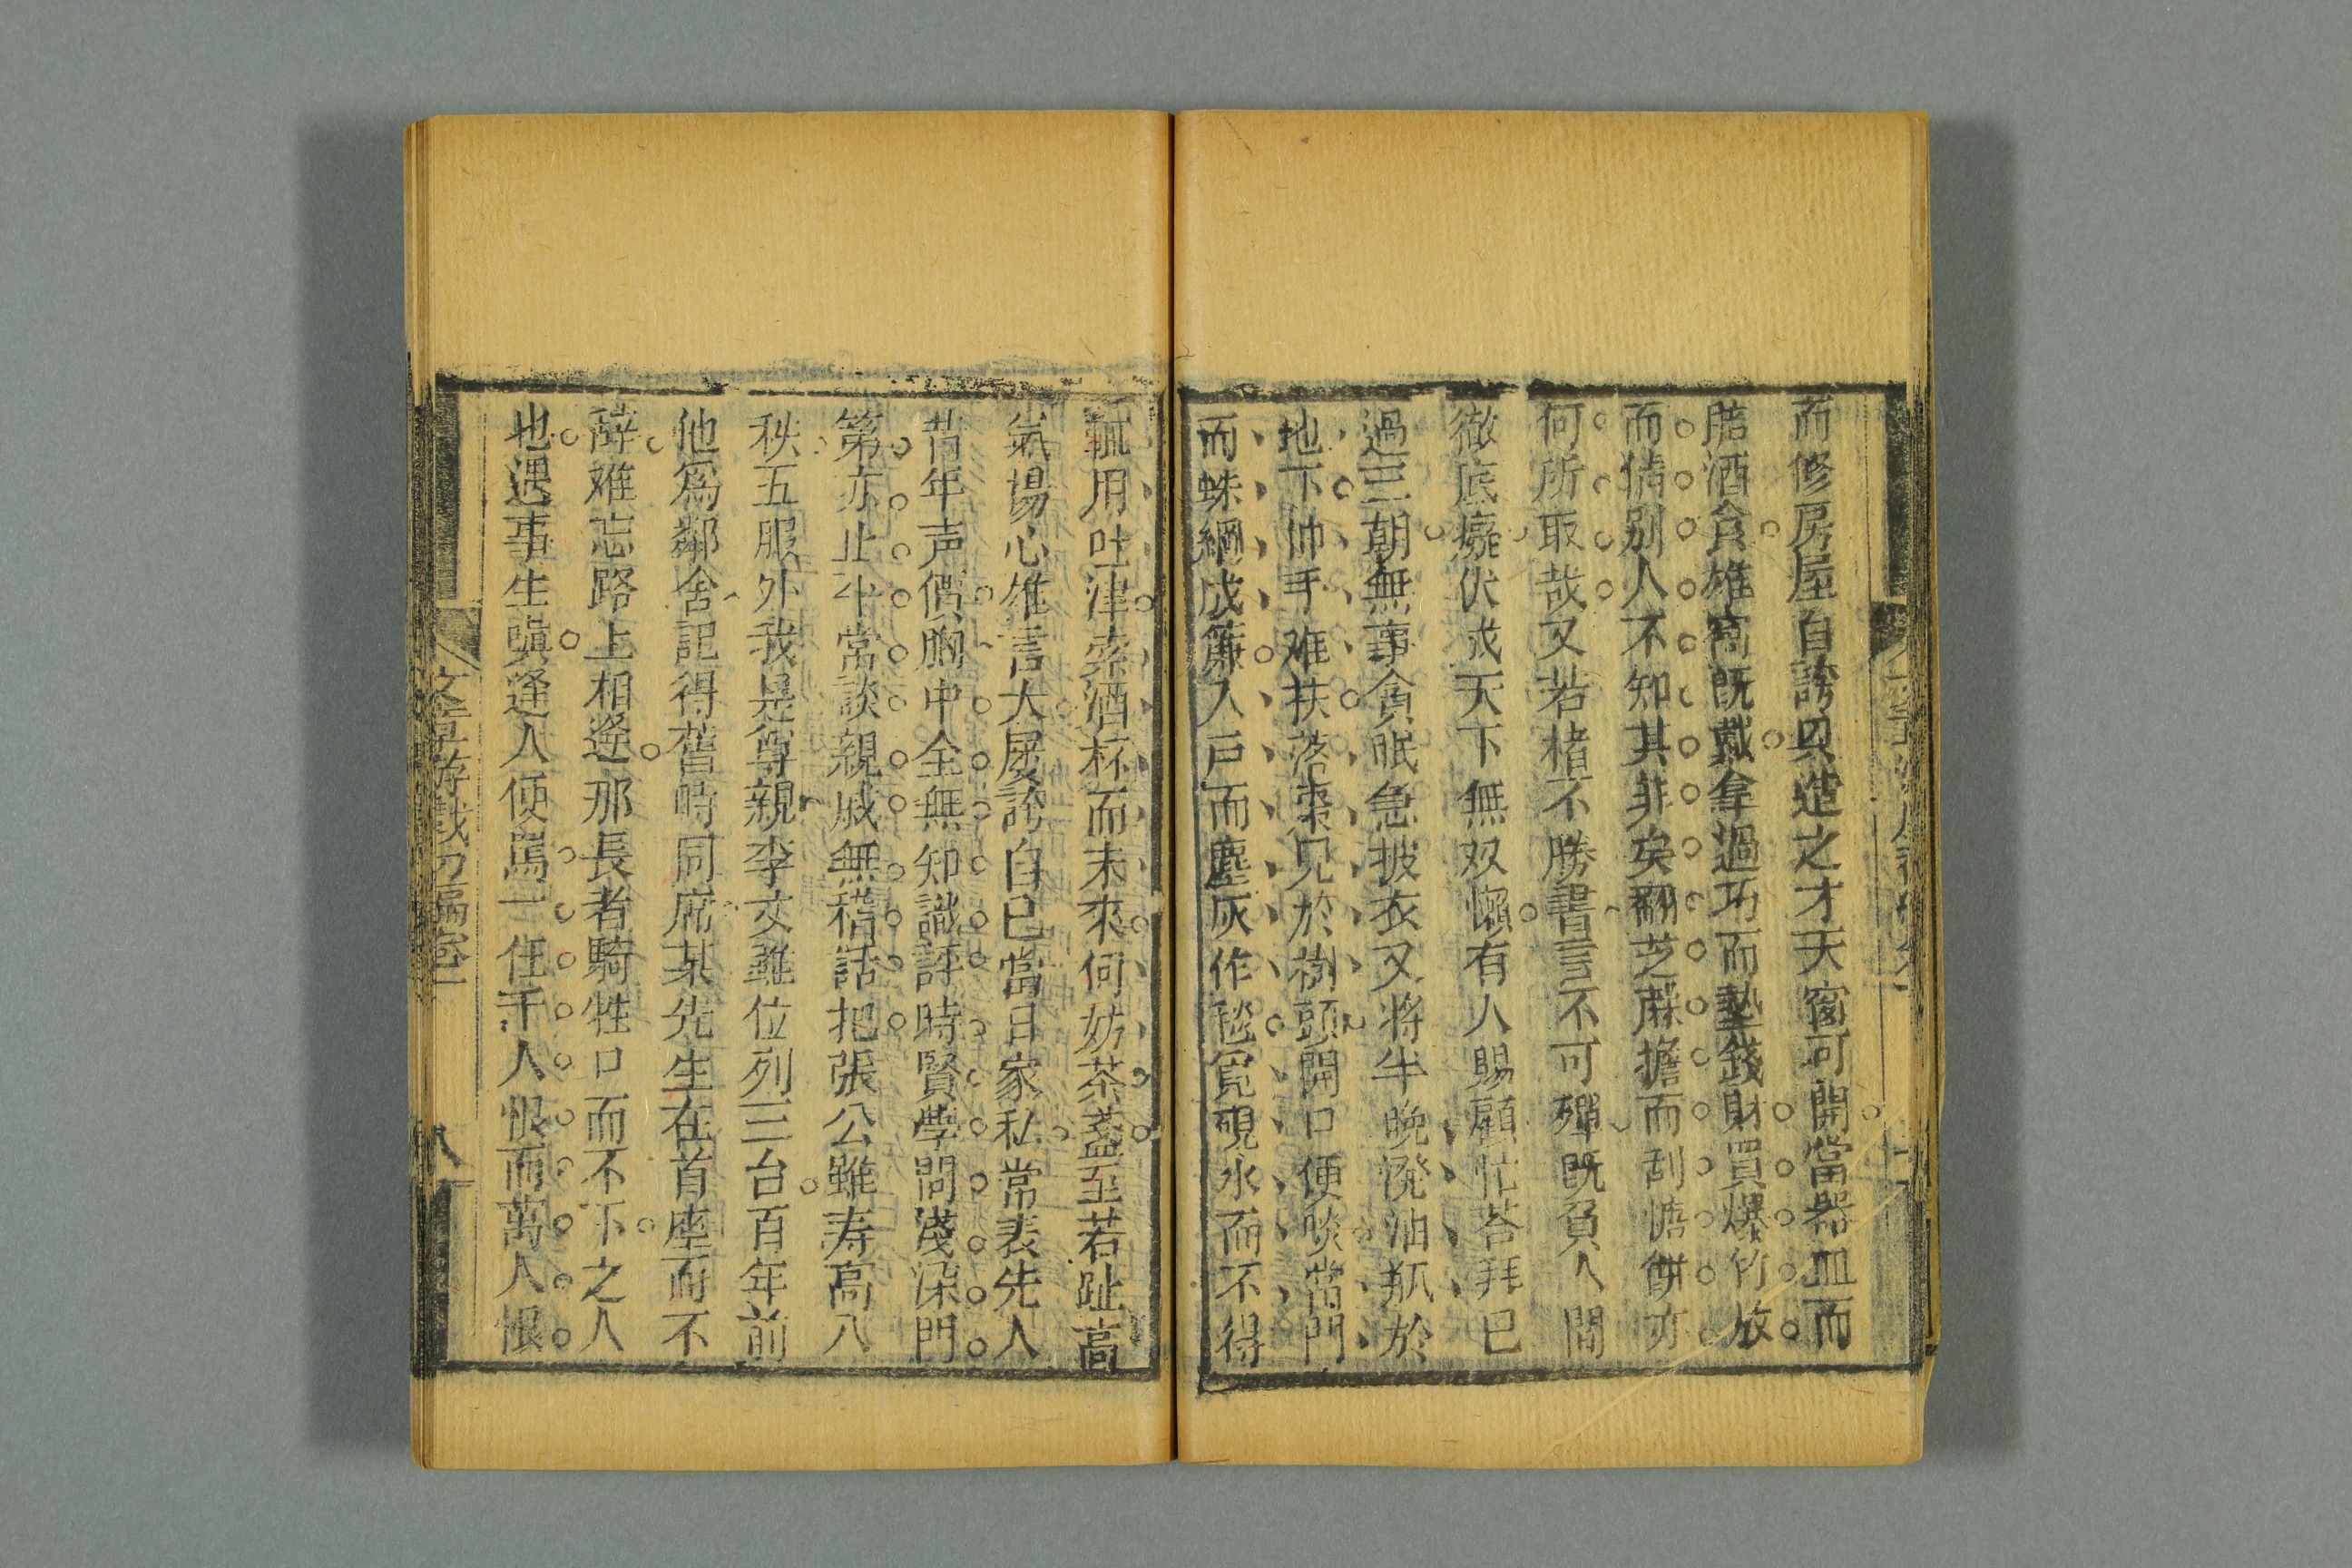 而修房屋自誇具造之才天窗可開當器皿而
賠酒食雄窩既戴拿過巧而墊錢財買爆竹放
而倩别人不知其非矣翻芝蔴擔而刮燒餅亦
何所取哉又若楮不勝書言不可殫既負人間
徹底癡伏求天下無双懶有人賜顧忙荅拜已
過三朝無事貪眠急披衣又將半晚潑油瓶於
地下伸手难扶落棗兒於樹頭開口便啖當門
而蛛網成簾入戸而塵灰作毯覓硯水而不得
輒用吐津索酒杯而未來何妨茶盞至若趾高
氣揚心雄言大屡誇自已當日家私常表先人
昔年声價胸中全無知識評時賢學問淺深門
第亦止平常談親戚無稽話把張公雖寿高八
秩五服外我是尊親李文雖位列三台百年前
他爲鄰舍記得舊時同席某先生在首座而不
辞难忘路上相逢那長者騎牲口而不下之人
也遇事生嗔逢人便罵一任千人恨而萬人恨
文章游戲初編卷一
八